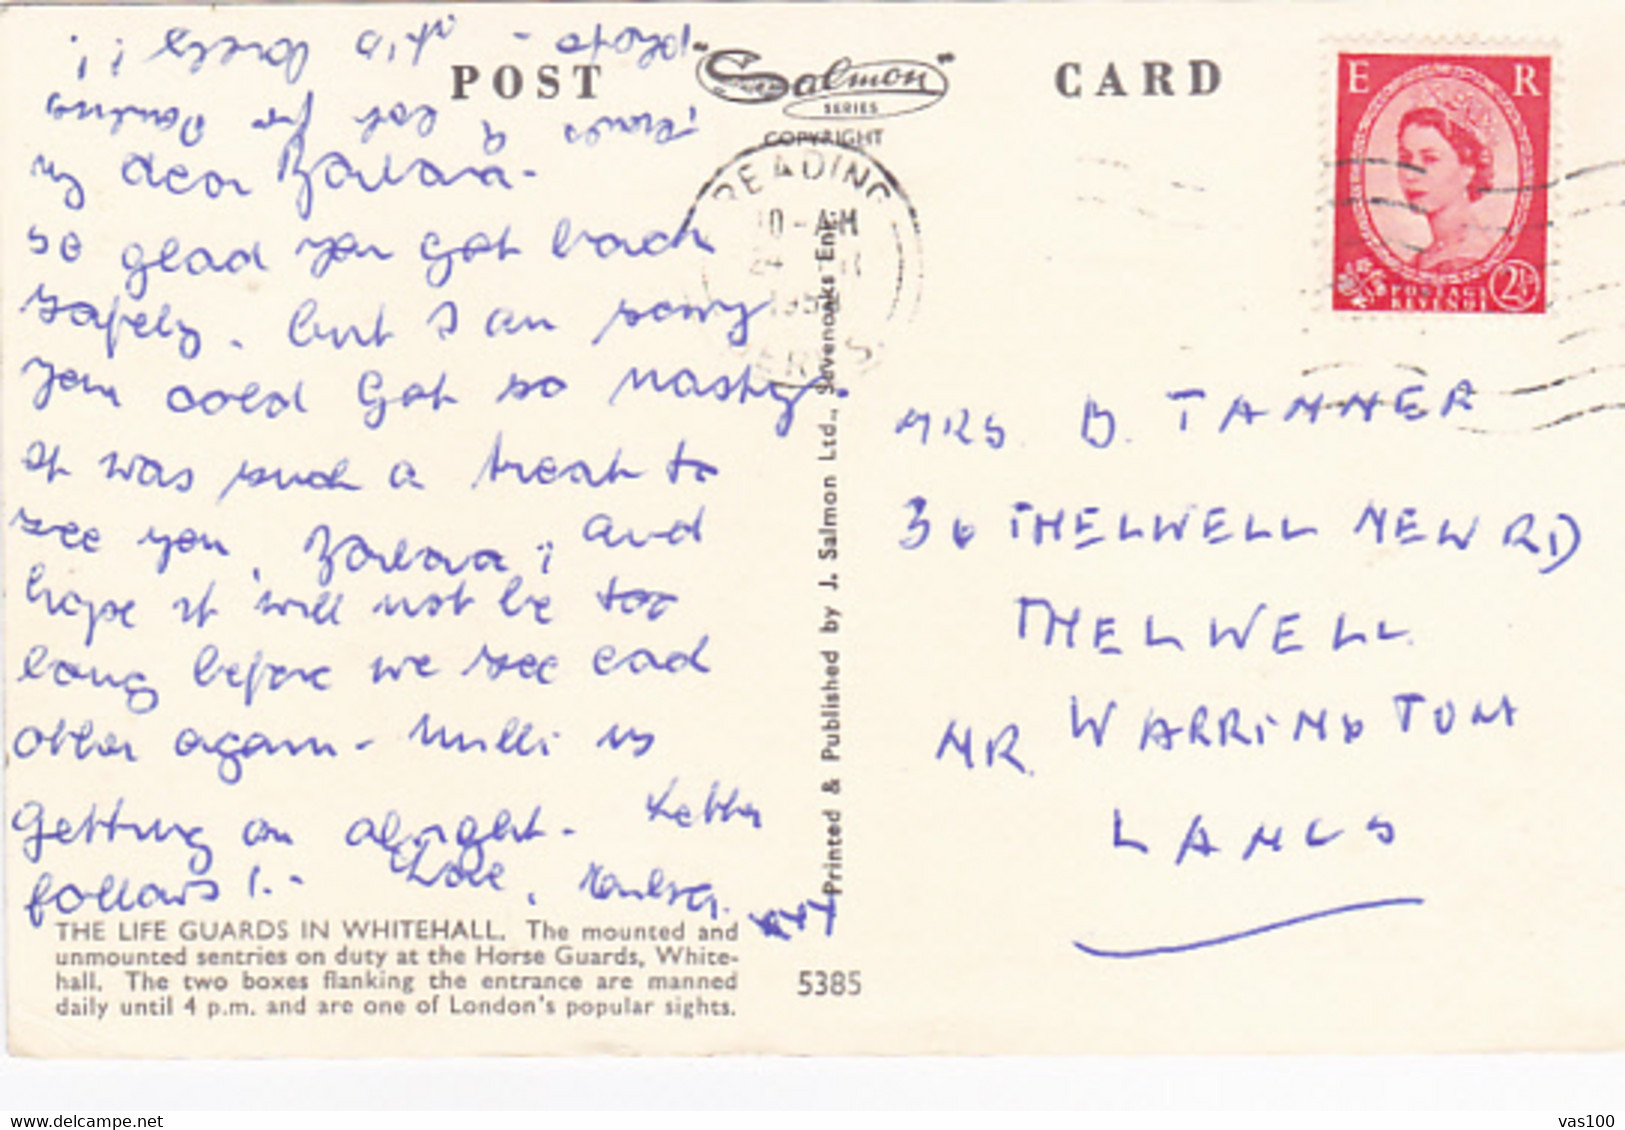 POST
"Salmon"
SERIES
COPYRIGHT
CARD
E R
POSTAGE
REVENUE
2½D
READING
10-AM
24
195
BERKS.
Thanks a lot for
photo -
My dear Barbara -
so glad you got back
safely. but I am sorry
your cold got so nasty.
It was such a treat to
see you, Barbara; and
hope it will not be too
long before we see each
other again - Milli is
getting on alright. Letter
follows! - Love,
xxx
THE LIFE GUARDS IN WHITEHALL. The mounted and
unmounted sentries on duty at the Horse Guards, White-
hall. The two boxes flanking the entrance are manned
daily until 4 p.m. and are one of London's popular sights.
5385
Printed & Published by J. Salmon Ltd., Sevenoaks Eng.
MRS. B. TANNER
36 THELWELL NEW RD
THELWELL
NR. WARRINGTON
LANCS
vas100